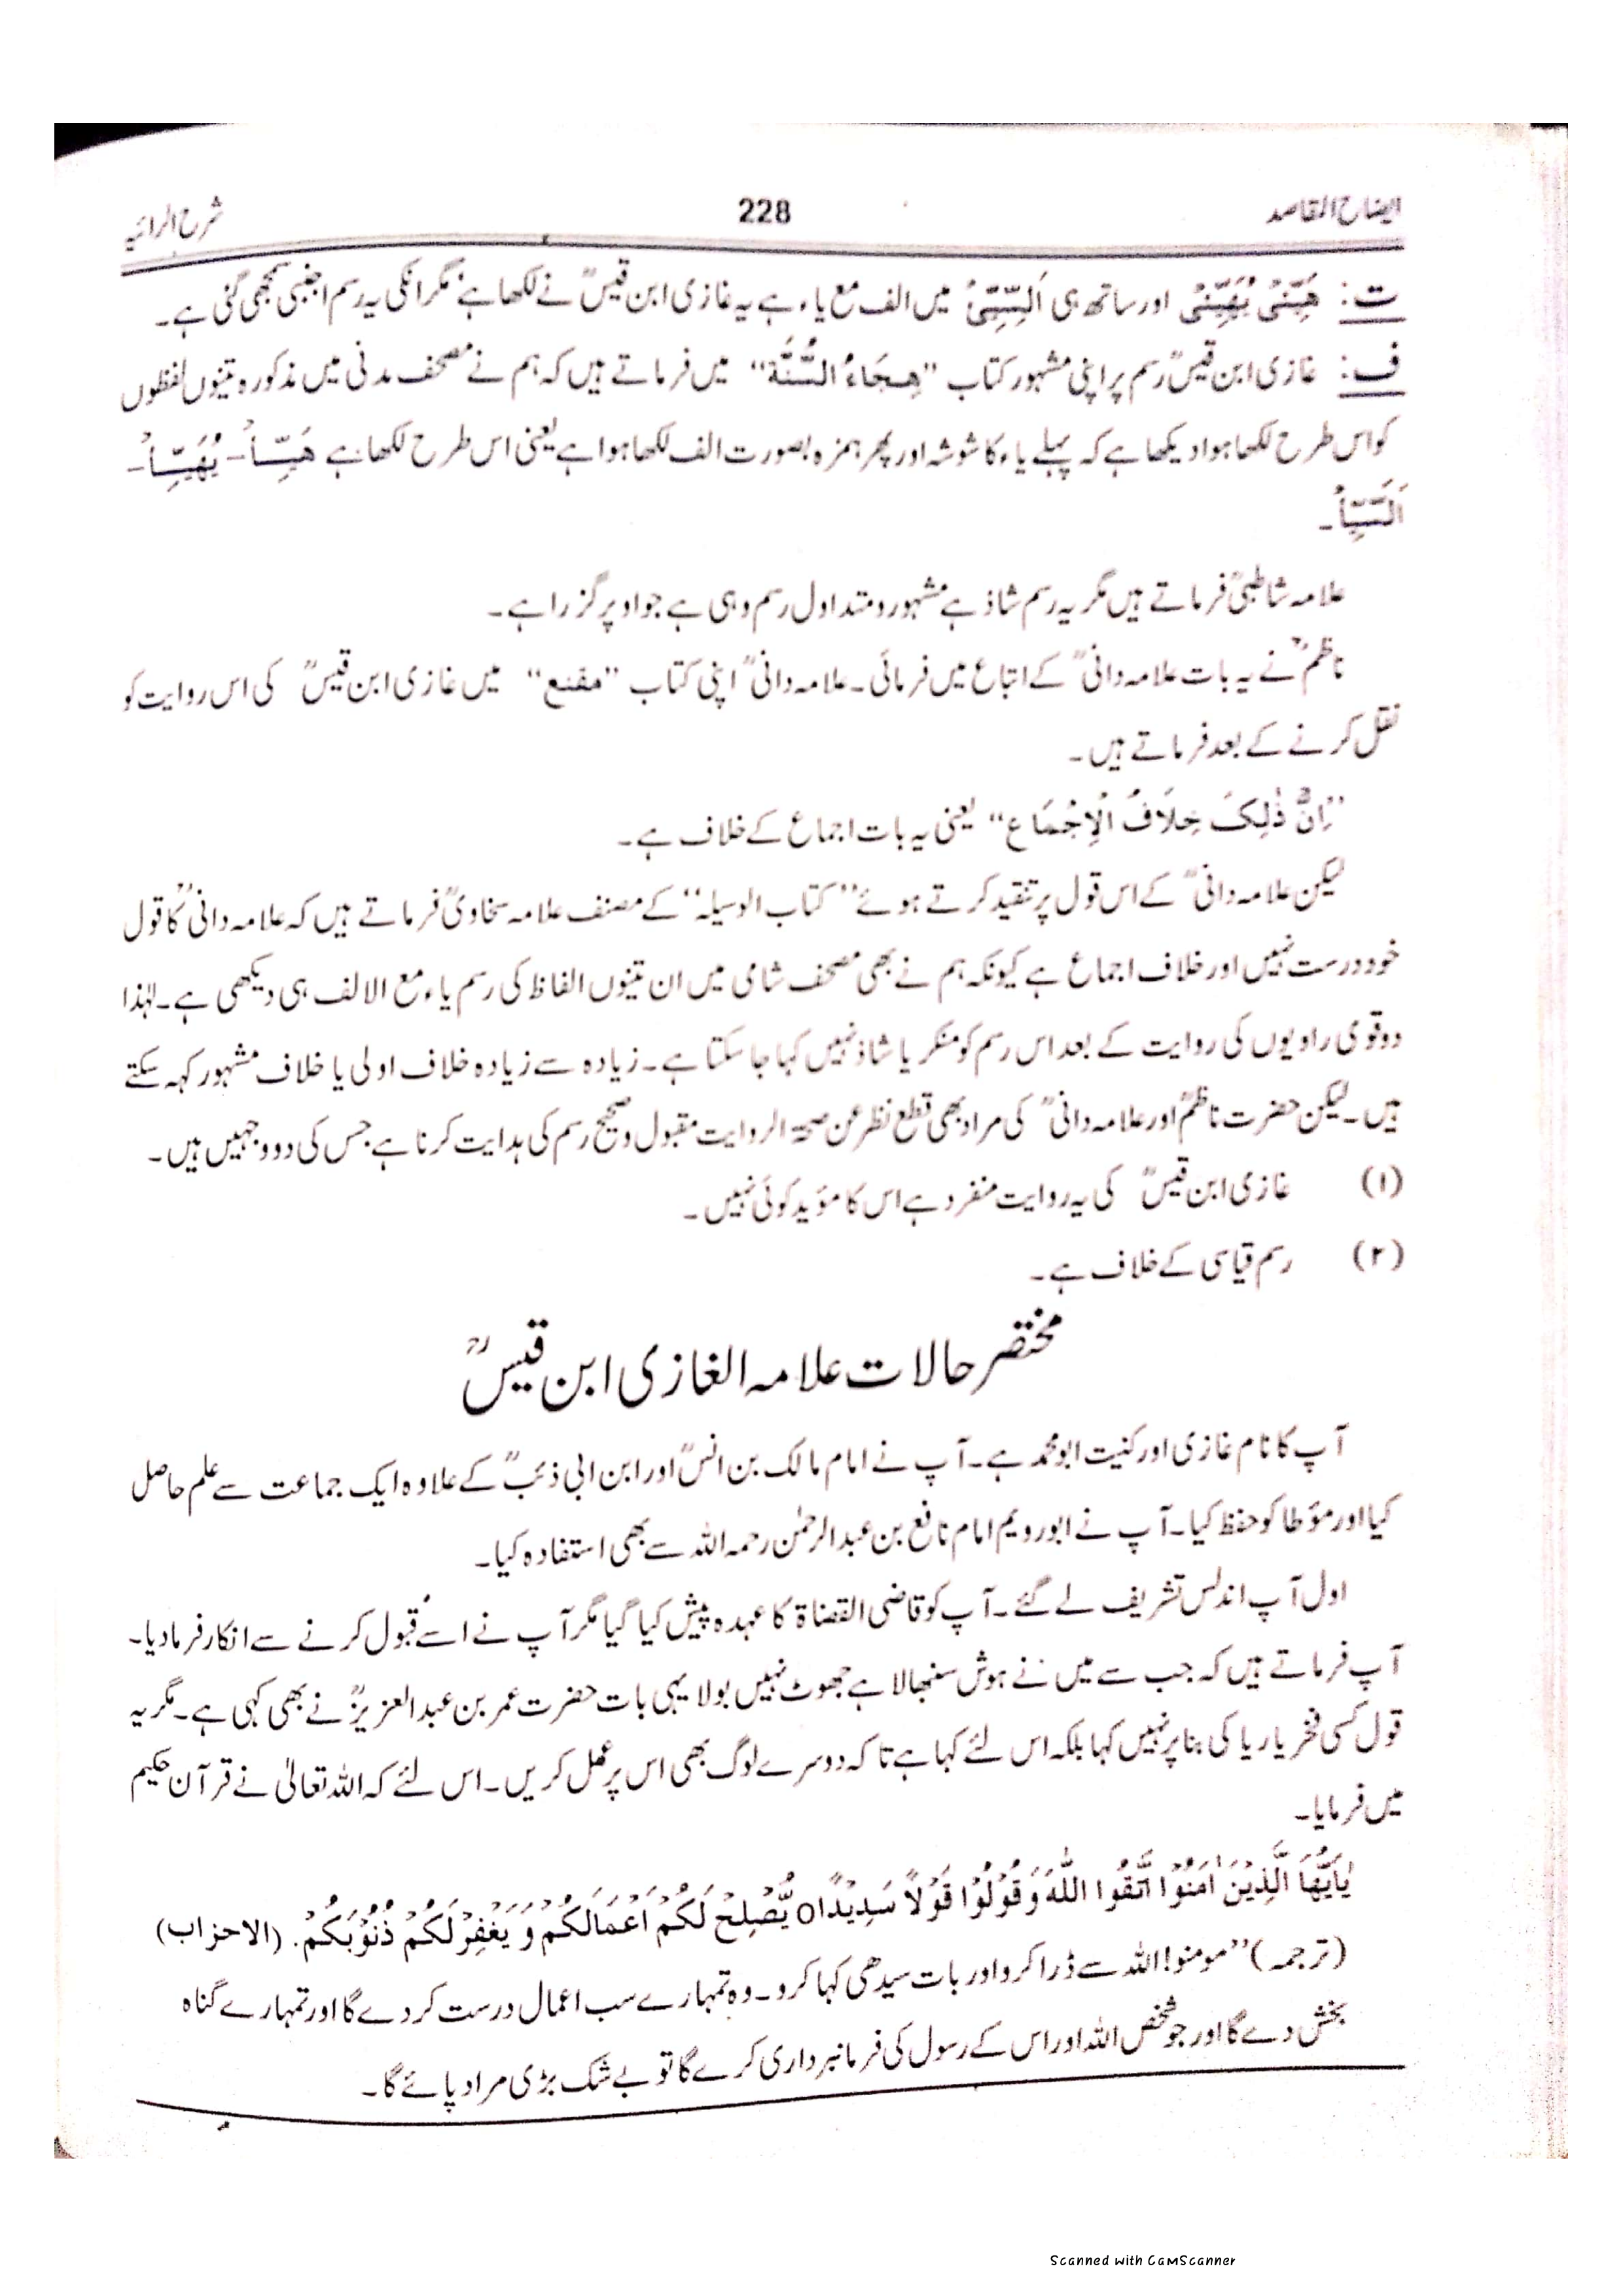 ایضاح المقاصد 228 شرح الرائیہ
ت: هَيِّئْ يُهَيِّئْ اور ساتھ ہی اَلسَّيِّئُ میں الف مع یاء ہے یہ غازی ابن قیسؒ نے لکھا ہے مگر انکی یہ رسم اجنبی سمجھی گئی ہے۔
ف: غازی ابن قیسؒ رسم پر اپنی مشہور کتاب "هِجَاءُ السُّنَّة" میں فرماتے ہیں کہ ہم نے مصحف مدنی میں مذکورہ تینوں لفظوں
کو اس طرح لکھا ہوا دیکھا ہے کہ پہلے یاء کا شوشہ اور پھر ہمزہ بصورت الف لکھا ہوا ہے یعنی اس طرح لکھا ہے هَيِّـأْ۔ يُهَيِّـأْ۔
اَلسَّيِّأُ۔
علامہ شاطبیؒ فرماتے ہیں مگر یہ رسم شاذ ہے مشہور و متداول رسم وہی ہے جو اوپر گزرا ہے۔
ناظمؒ نے یہ بات علامہ دانیؒ کے اتباع میں فرمائی۔ علامہ دانیؒ اپنی کتاب "مقنع" میں غازی ابن قیسؒ کی اس روایت کو
نقل کرنے کے بعد فرماتے ہیں۔
"اِنَّ ذٰلِكَ خِلَافُ الْاِجْمَاع" یعنی یہ بات اجماع کے خلاف ہے۔
لیکن علامہ دانیؒ کے اس قول پر تنقید کرتے ہوئے "کتاب الوسیلہ" کے مصنف علامہ سخاویؒ فرماتے ہیں کہ علامہ دانیؒ کا قول
خود درست نہیں اور خلاف اجماع ہے کیونکہ ہم نے بھی مصحف شامی میں ان تینوں الفاظ کی رسم یاء مع الالف ہی دیکھی ہے۔ لہٰذا
دو قوی راویوں کی روایت کے بعد اس رسم کو منکر یا شاذ نہیں کہا جا سکتا ہے۔ زیادہ سے زیادہ خلاف اولی یا خلاف مشہور کہہ سکتے
ہیں۔ لیکن حضرت ناظمؒ اور علامہ دانیؒ کی مراد بھی قطع نظر عن صحۃ الروایت مقبول و صحیح رسم کی ہدایت کرنا ہے جس کی دو وجہیں ہیں۔
(۱) غازی ابن قیسؒ کی یہ روایت منفرد ہے اس کا مؤید کوئی نہیں۔
(۲) رسم قیاسی کے خلاف ہے۔
مختصر حالات علامہ الغازی ابن قیسؒ
آپ کا نام غازی اور کنیت ابو محمد ہے۔ آپ نے امام مالک بن انسؒ اور ابن ابی ذئبؒ کے علاوہ ایک جماعت سے علم حاصل
کیا اور مؤطا کو حفظ کیا۔ آپ نے ابورویم امام نافع بن عبدالرحمٰن رحمہ اللہ سے بھی استفادہ کیا۔
اول آپ اندلس تشریف لے گئے۔ آپ کو قاضی القضاۃ کا عہدہ پیش کیا گیا مگر آپ نے اسے قبول کرنے سے انکار فرمادیا۔
آپ فرماتے ہیں کہ جب سے میں نے ہوش سنبھالا ہے جھوٹ نہیں بولا یہی بات حضرت عمر بن عبدالعزیزؒ نے بھی کہی ہے۔ مگر یہ
قول کسی فخر یا ریا کی بنا پر نہیں کہا بلکہ اس لئے کہا ہے تاکہ دوسرے لوگ بھی اس پر عمل کریں۔ اس لئے کہ اللہ تعالیٰ نے قرآن حکیم
میں فرمایا۔
يٰاَيُّهَا الَّذِيْنَ اٰمَنُوْا اتَّقُوا اللّٰهَ وَقُوْلُوْا قَوْلًا سَدِيْدًا o يُّصْلِحْ لَكُمْ اَعْمَالَكُمْ وَيَغْفِرْلَكُمْ ذُنُوْبَكُمْ. (الاحزاب)
(ترجمہ) "مومنو! اللہ سے ڈرا کرو اور بات سیدھی کہا کرو۔ وہ تمہارے سب اعمال درست کر دے گا اور تمہارے گناہ
بخش دے گا اور جو شخص اللہ اور اس کے رسول کی فرمانبرداری کرے گا تو بے شک بڑی مراد پائے گا۔
Scanned with CamScanner